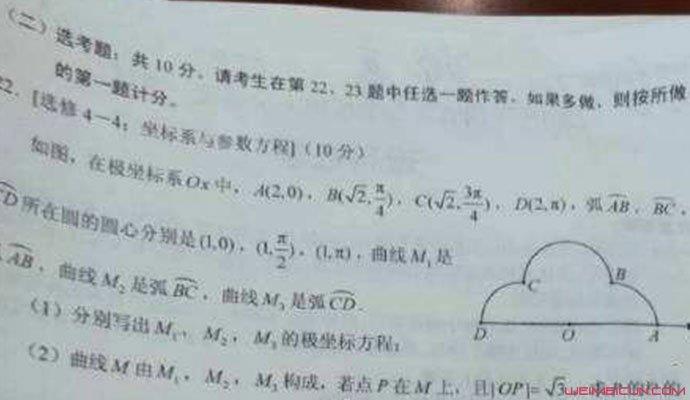 （二）选考题：共10分。请考生在第22、23题中任选一题作答。如果多做，则按所做
的第一题计分。
22. [选修4-4：坐标系与参数方程]（10分）
如图，在极坐标系Ox中，A(2,0)，B(√2,π/4)，C(√2,3π/4)，D(2,π)，弧AB，BC，
CD所在圆的圆心分别是(1,0)，(1,π/2)，(1,π)，曲线M₁是
AB，曲线M₂是弧BC，曲线M₃是弧CD.
（1）分别写出M₁，M₂，M₃的极坐标方程；
（2）曲线M由M₁，M₂，M₃构成，若点P在M上，且|OP|=√3，
B
C
D
O
A
WEIMEICUN.COM